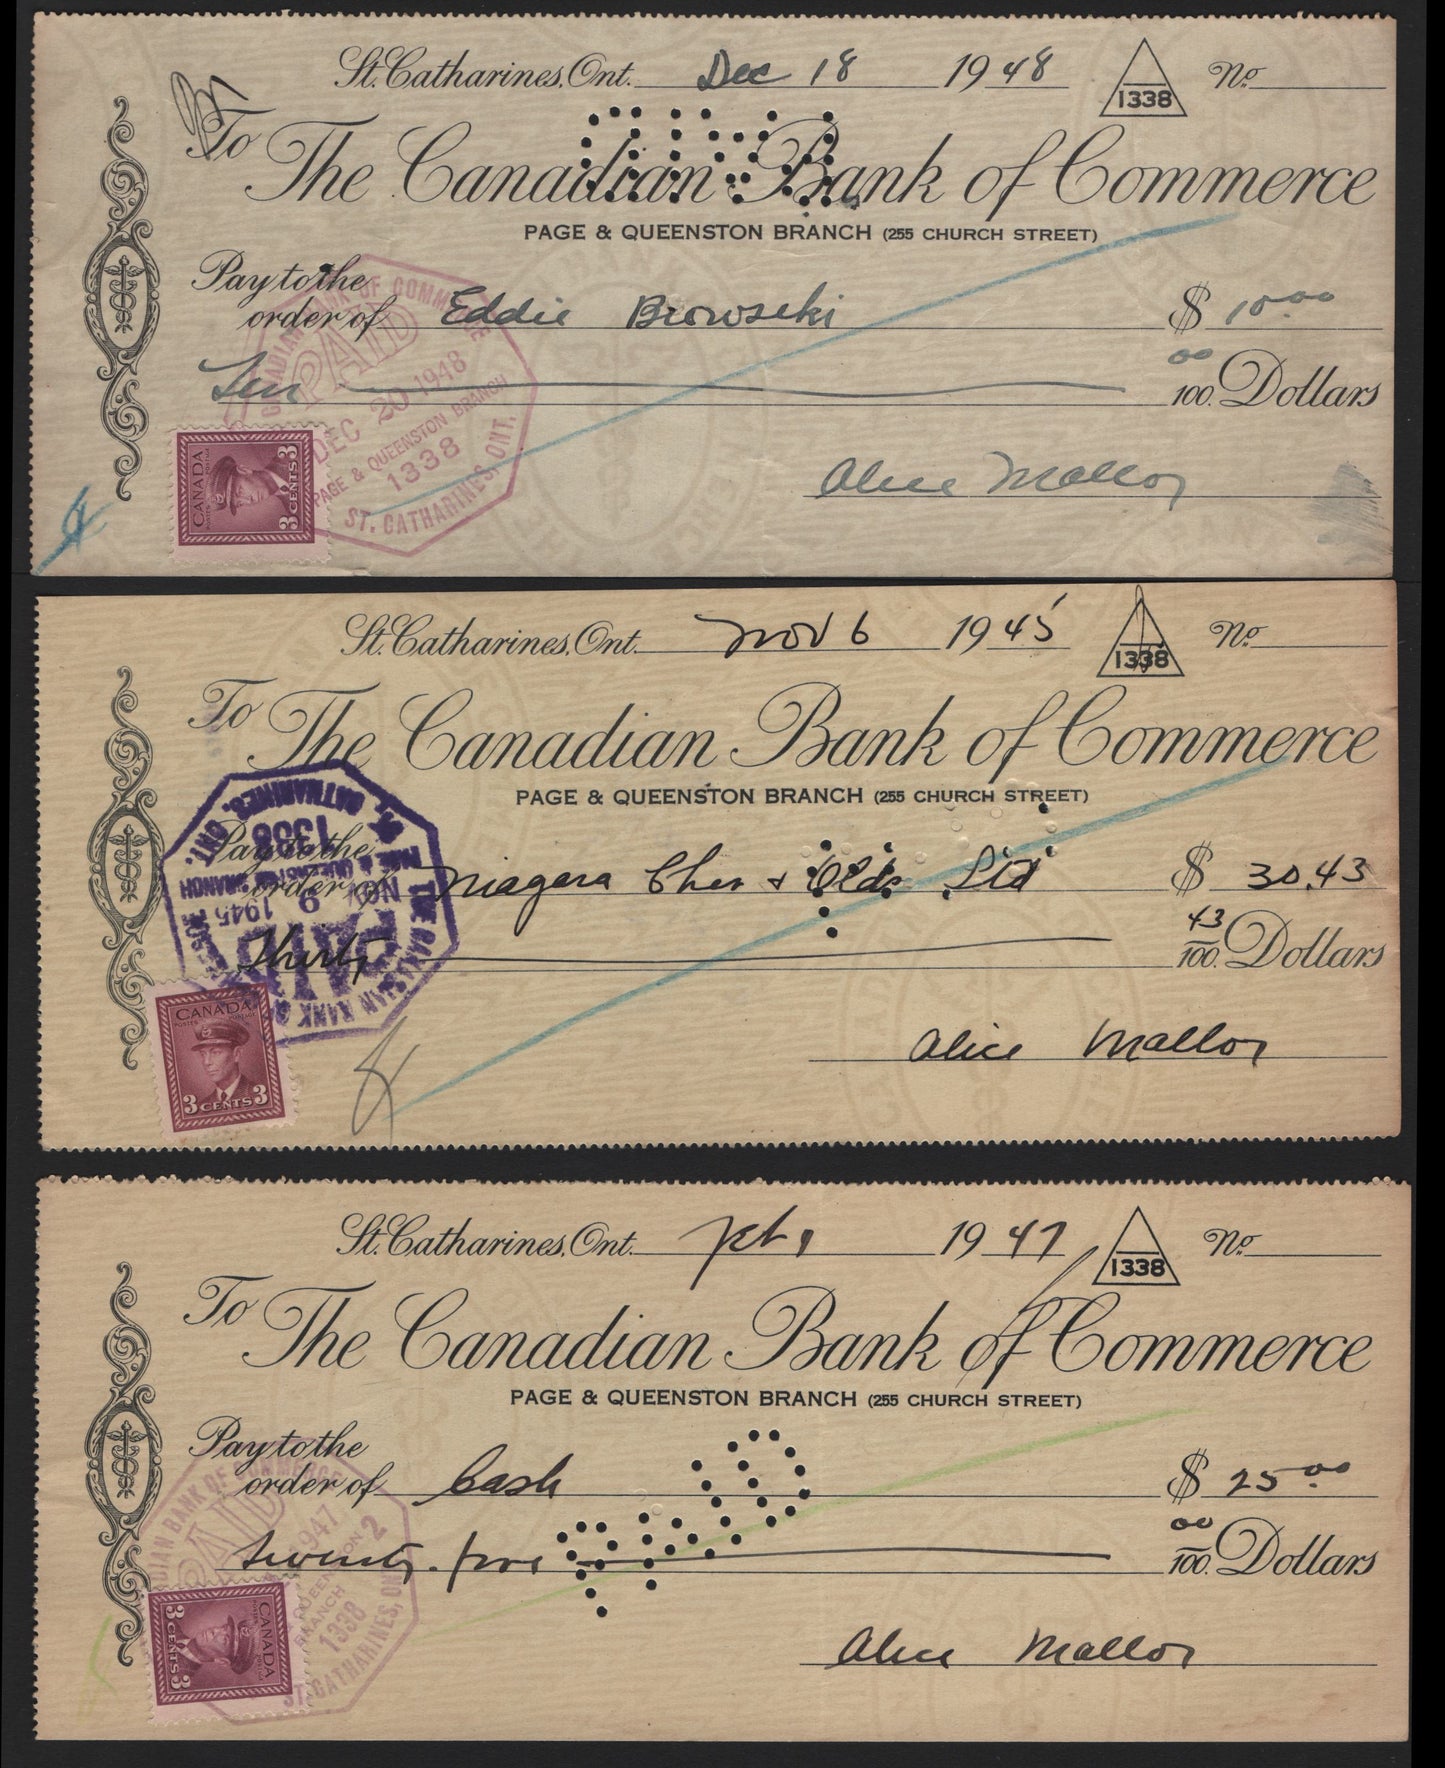 St. Catharines, Ont. Dec 18 1948 1338 No.
To The Canadian Bank of Commerce
PAGE & QUEENSTON BRANCH (255 CHURCH STREET)
Pay to the
order of Eddie Browseki $ 10.00
Ten 00/100 Dollars
CANADIAN BANK OF COMMERCE
PAID
DEC 20 1948
PAGE & QUEENSTON BRANCH
1338
ST. CATHARINES, ONT.
CANADA
POSTES POSTAGE
3 CENTS 3
Alice Malloy
St. Catharines, Ont. Nov 6 1945 1338 No.
To The Canadian Bank of Commerce
PAGE & QUEENSTON BRANCH (255 CHURCH STREET)
Pay to the
order of Niagara Chev & Olds Ltd $ 30.43
Thirty 43/100 Dollars
THE CANADIAN BANK OF
PAID
NOV 9 1945
PAGE & QUEENSTON BRANCH
1338
ST. CATHARINES, ONT.
CANADA
POSTES POSTAGE
3 CENTS 3
Alice Malloy
St. Catharines, Ont. 1947 1338 No.
To The Canadian Bank of Commerce
PAGE & QUEENSTON BRANCH (255 CHURCH STREET)
Pay to the
order of Cash $ 25.00
Twenty five 00/100 Dollars
CANADIAN BANK OF COMMERCE
PAID
1947
QUEENSTON 2
BRANCH
1338
ST. CATHARINES, ONT.
CANADA
POSTES POSTAGE
3 CENTS 3
Alice Malloy